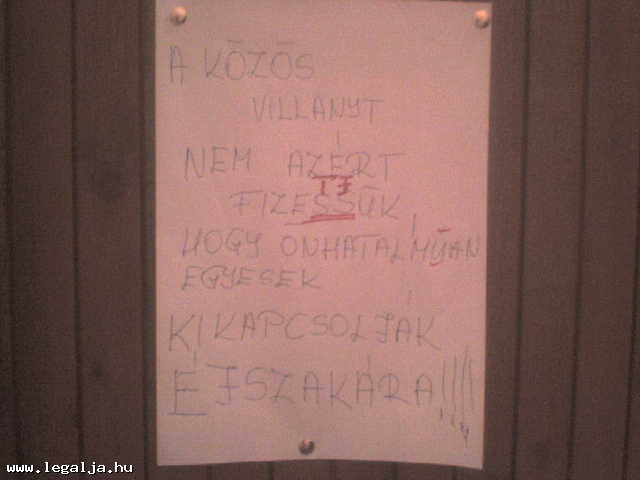 A KÖZÖS
VILLANYT
NEM AZÉRT
IJ
FIZESSÜK,
HOGY ÖNHATALMŰAN
EGYESEK
KIKAPCSOLJÁK
ÉJSZAKÁRA!!!!
www.legalja.hu